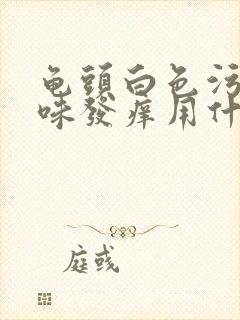 龟頭白色污
味發痒用什
庭彧